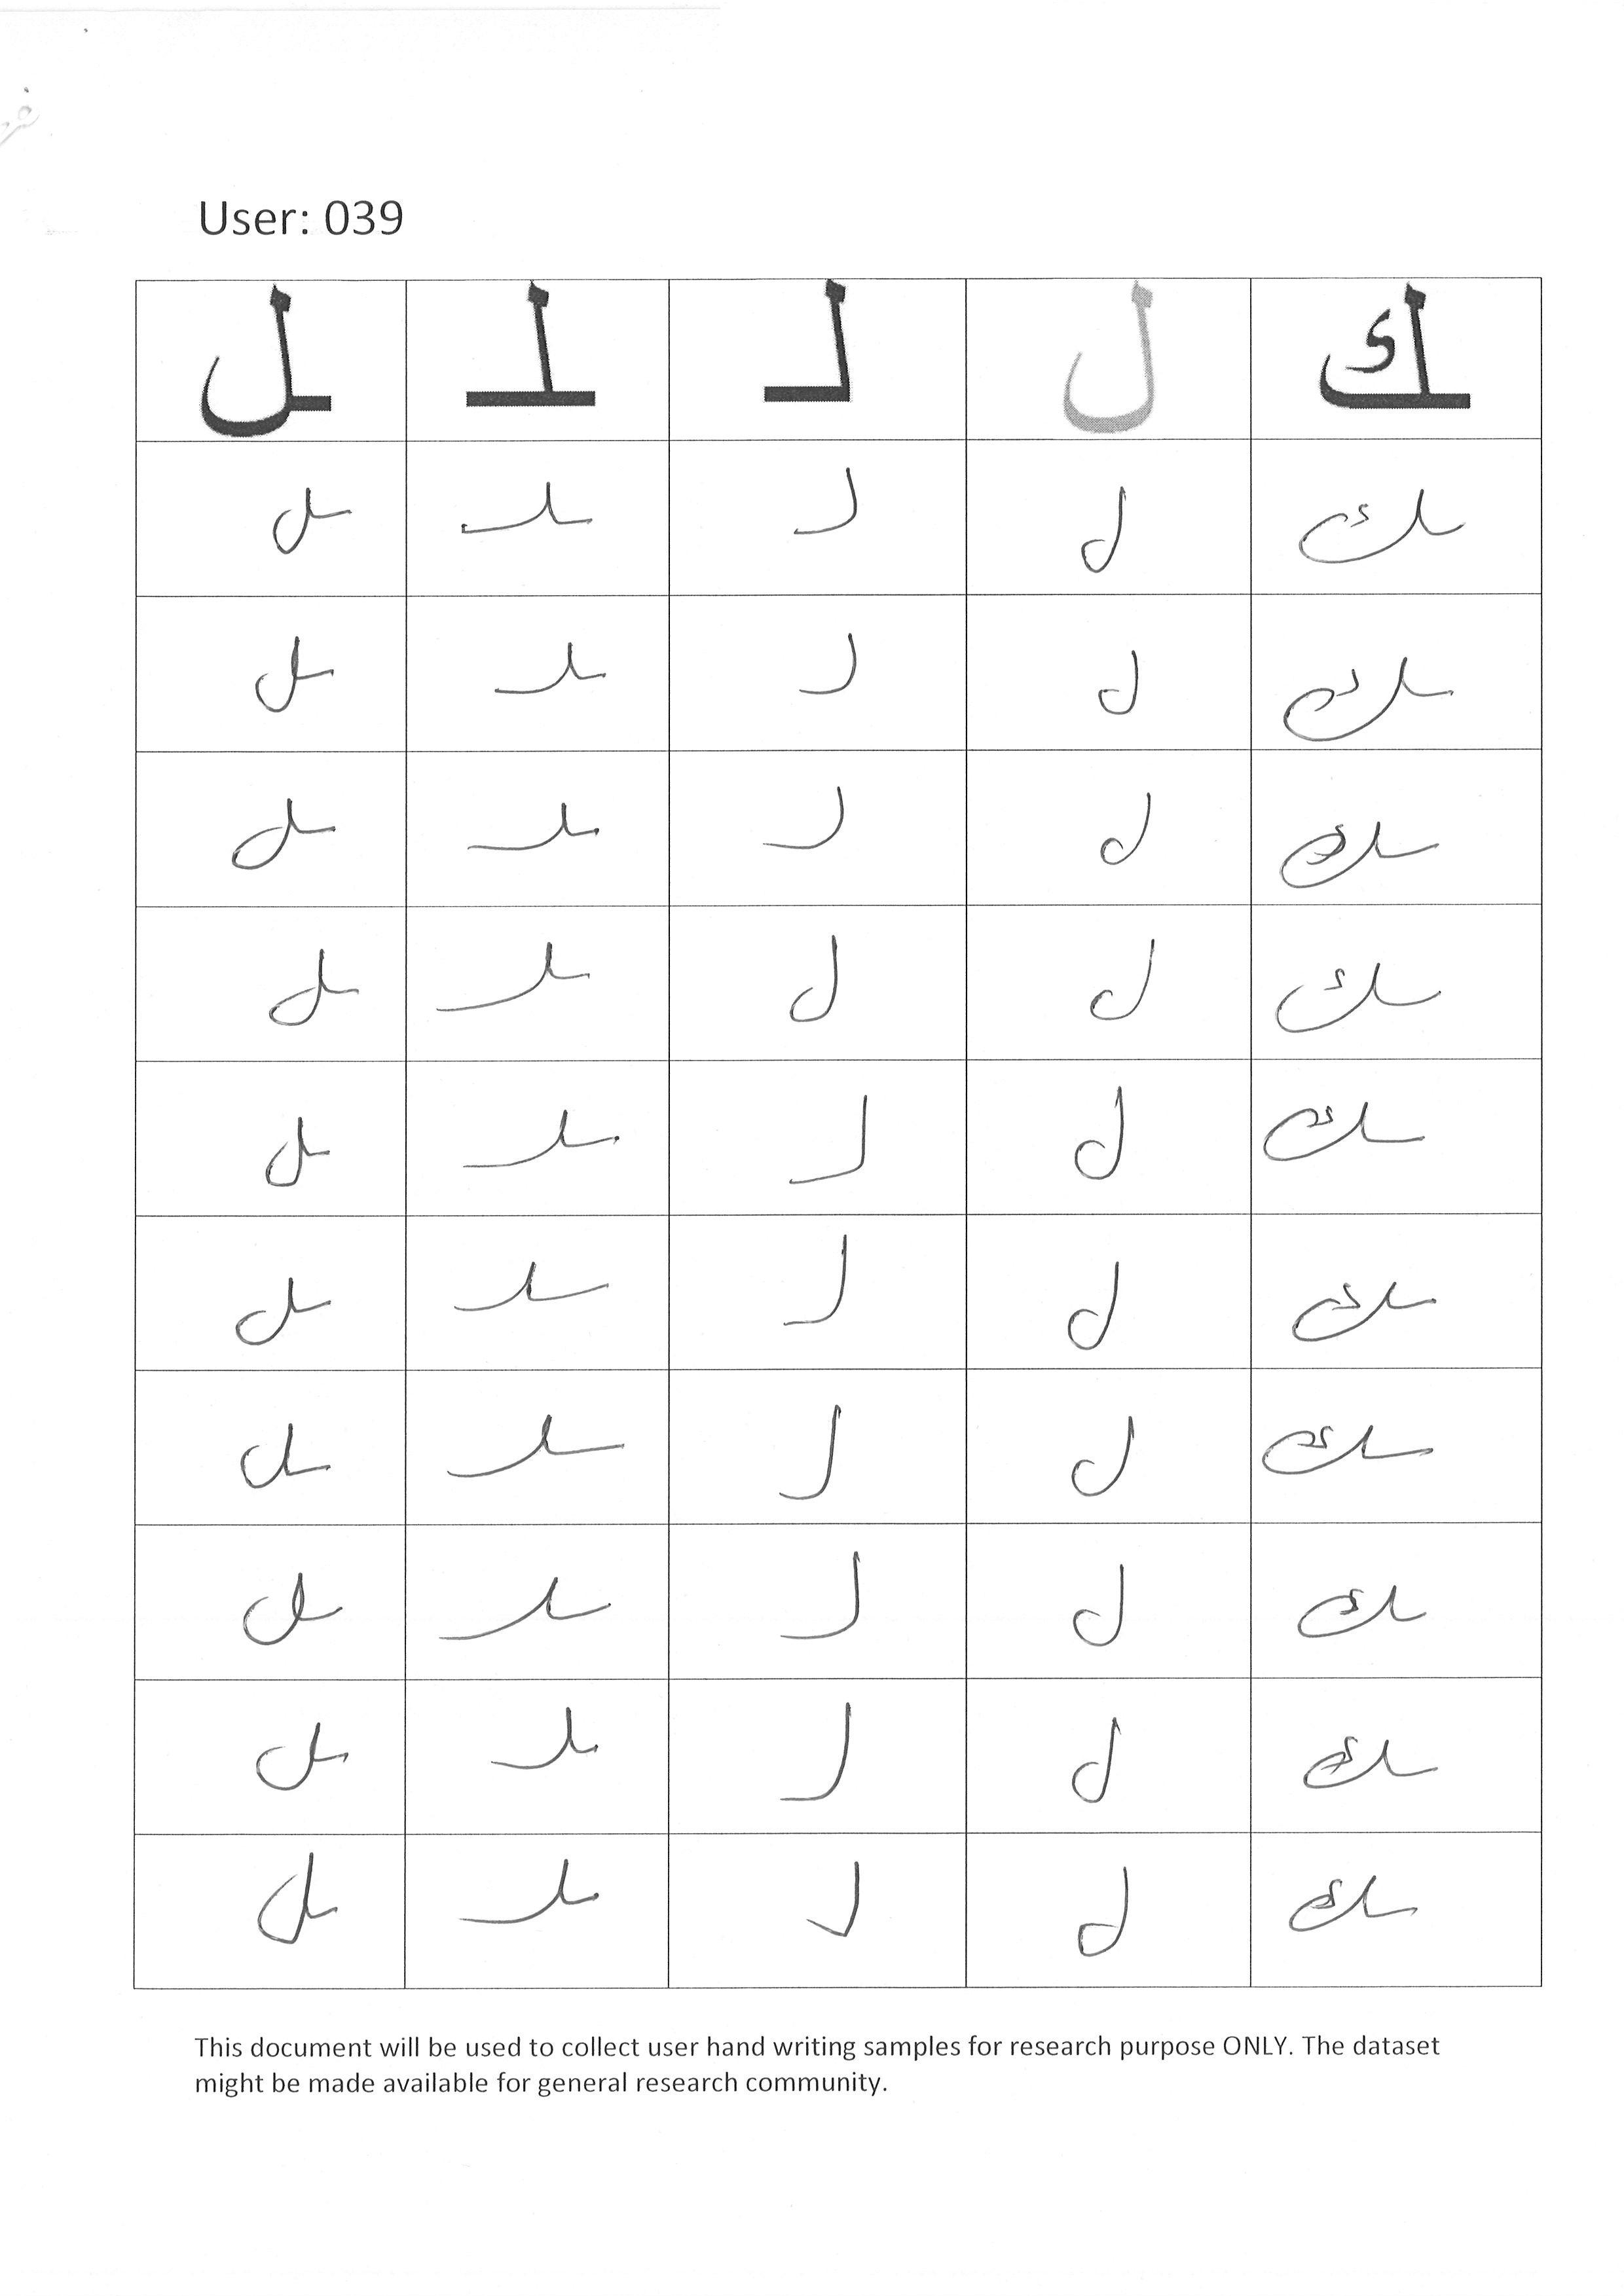 User: 039
ـك ل لـ ـلـ ـل
ـك ل لـ ـلـ ـل
ـك ل لـ ـلـ ـل
ـك ل لـ ـلـ ـل
ـك ل ل ـلـ ـل
ـك ل لـ ـلـ ـل
ـك ل لـ ـلـ ـل
ـك ل لـ ـلـ ـل
ـك ل لـ ـلـ ـل
ـك ل لـ ـلـ ـل
ـك ل لـ ـلـ ـل
This document will be used to collect user hand writing samples for research purpose ONLY. The dataset
might be made available for general research community.